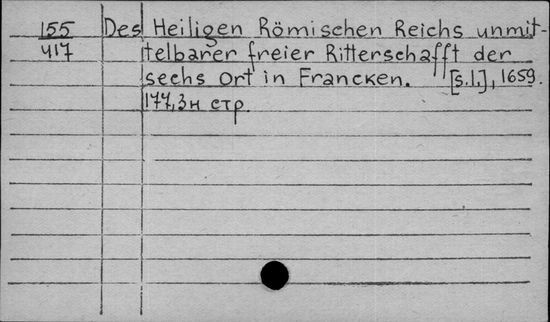 155 Des Heiligen Römischen Reichs unmit-
417 telbarer freier Ritterschafft der
sechs Ort in Francken. [s.l.], 1659.
177, 3н стр.